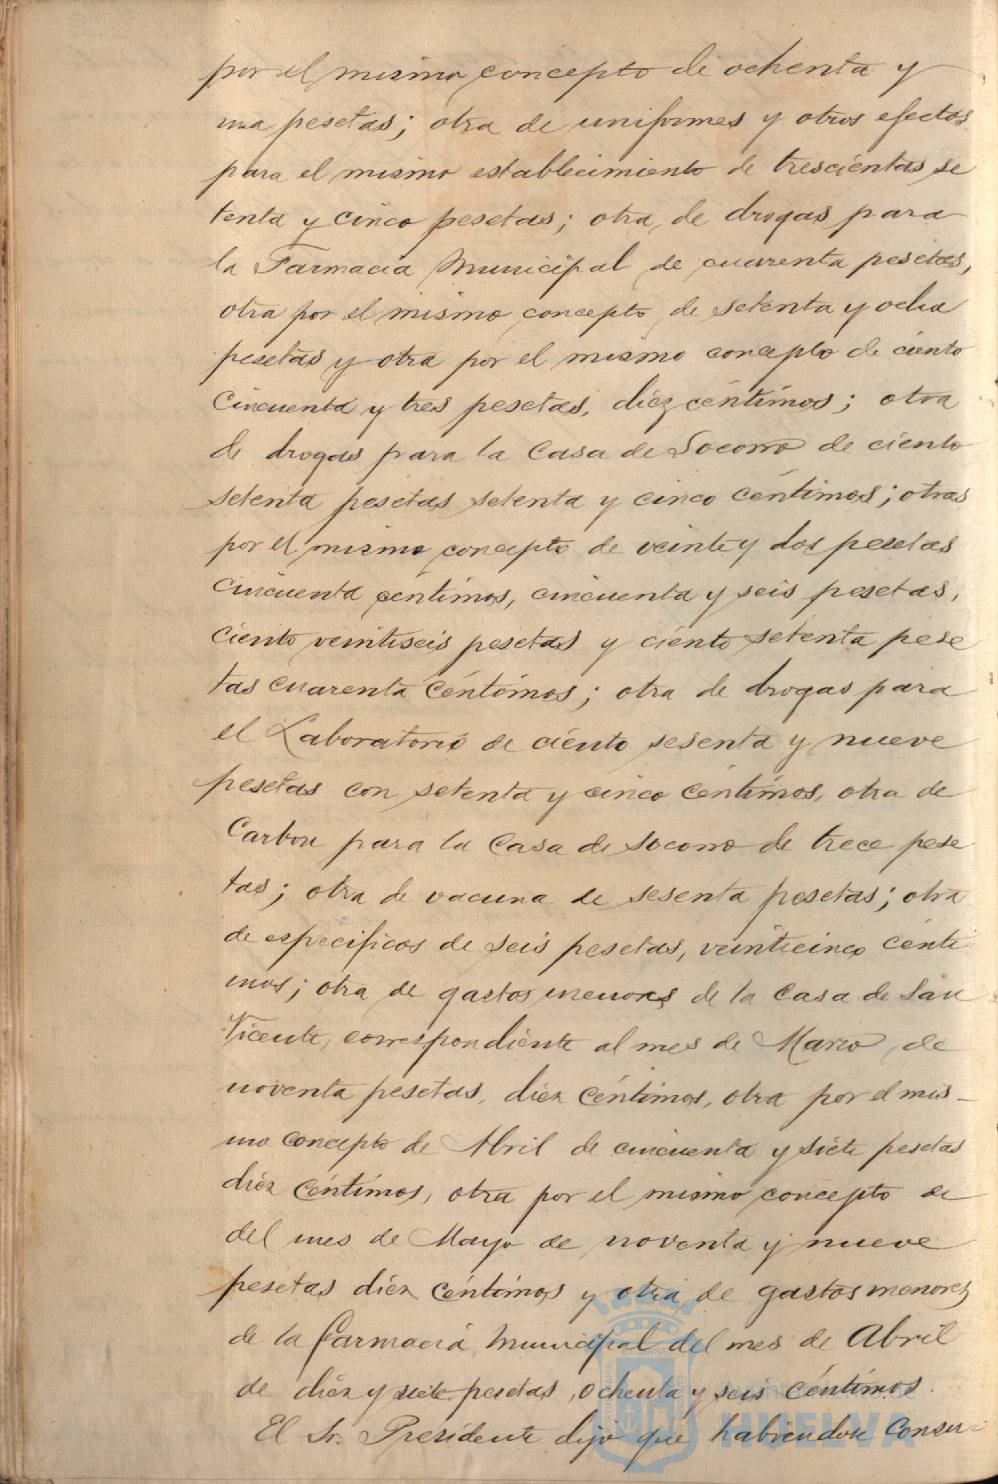 por el mismo concepto de ochenta y
una pesetas; otra de uniformes y otros efectos
para el mismo establecimiento de trescientas se
tenta y cinco pesetas; otra de drogas para
la Farmacia Municipal de cuarenta pesetas,
otra por el mismo concepto de setenta y ocho
pesetas y otra por el mismo concepto de ciento
cincuenta y tres pesetas, diéz céntimos; otra
de drogas para la Casa de Socorro de ciento
setenta pesetas setenta y cinco céntimos; otras
por el mismo concepto de veinte y dos pesetas
cincuenta céntimos, cincuenta y seis pesetas,
ciento veintiseis pesetas y ciento setenta pese
tas cuarenta céntimos; otra de drogas para
el Laboratorio de ciento sesenta y nueve
pesetas con setenta y cinco céntimos, otra de
Carbon para la Casa de Socorro de trece pese
tas; otra de vacuna de sesenta pesetas; otra
de especificos de seis pesetas, veinticinco cénti
mos; otra de gastos menores de la Casa de San
Vicente, correspondiente al mes de Marzo, de
noventa pesetas, diéz céntimos, otra por el mis-
mo concepto de Abril de cincuenta y siete pesetas
diéz céntimos, otra por el mismo concepto de
del mes de Mayo de noventa y nueve
pesetas diéz céntimos y otra de gastos menores
de la farmacia Municipal del mes de Abril
de diéz y siete pesetas, ochenta y seis céntimos.
El Sr. Presidente dijo que habiendose
HUELVA